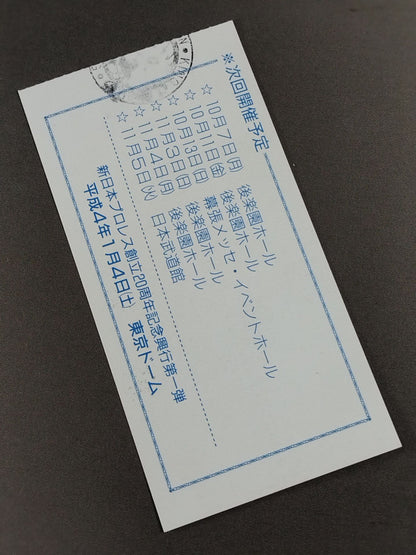 ※次回開催予定
☆10月7日(月) 後楽園ホール
☆10月11日(金) 後楽園ホール
☆10月13日(日) 幕張メッセ・イベントホール
☆11月3日(日) 後楽園ホール
☆11月4日(月) 後楽園ホール
☆11月5日(火) 日本武道館
新日本プロレス創立20周年記念興行第一弾
平成4年1月4日(土) 東京ドーム